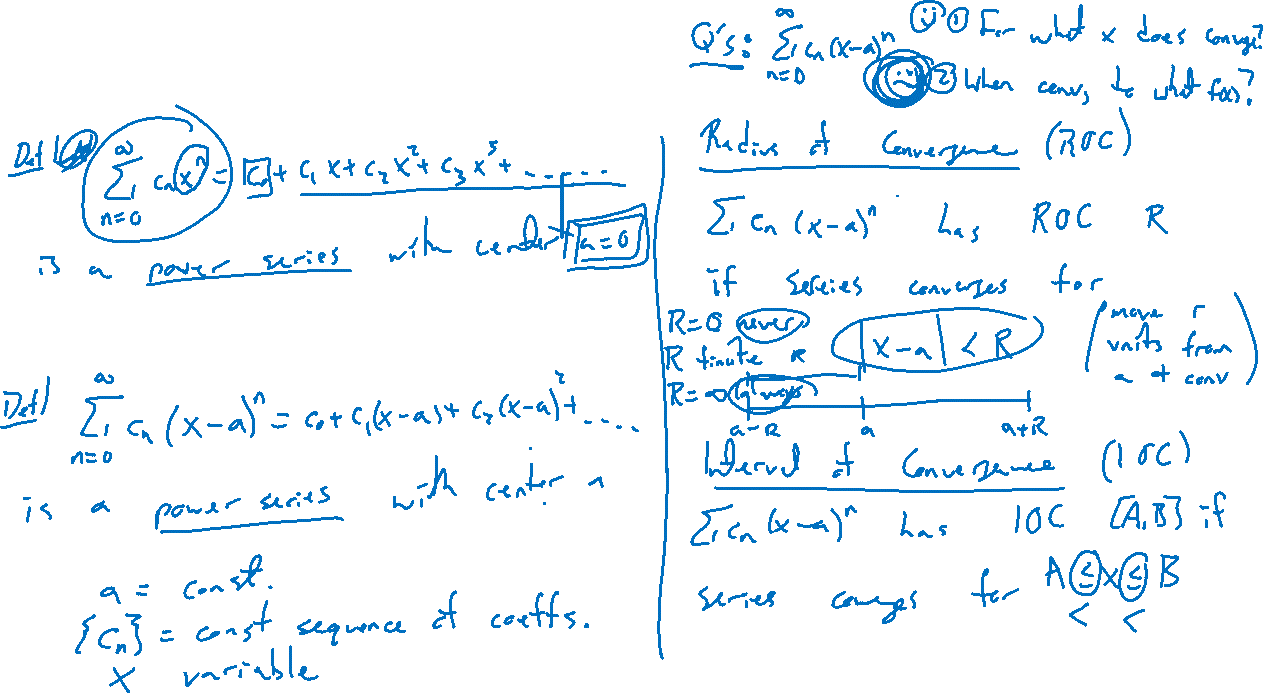 Def / ∞∑n=0 cₙxⁿ = c₀ + c₁x + c₂x² + c₃x³ + ......
is a power series with center a=0
Def / ∞∑n=0 cₙ(x-a)ⁿ = c₀ + c₁(x-a) + c₂(x-a)² + ....
is a power series with center a
a = const.
{cₙ} = const sequence of coeffs.
x variable
Q's: ∞∑n=0 cₙ(x-a)ⁿ ① For what x does convge?
② When conv, to what f(x)?
Radius of Convergence (ROC)
∑ cₙ (x-a)ⁿ has ROC R
if sereies converges for
R=0 never
|x-a| < R
(move r units from a & conv)
R finite R
R=∞ always
a-R a a+R
Interval of Convergence (IOC)
∑ cₙ (x-a)ⁿ has IOC [A,B] if
series conveges for A ≤ x ≤ B
< <